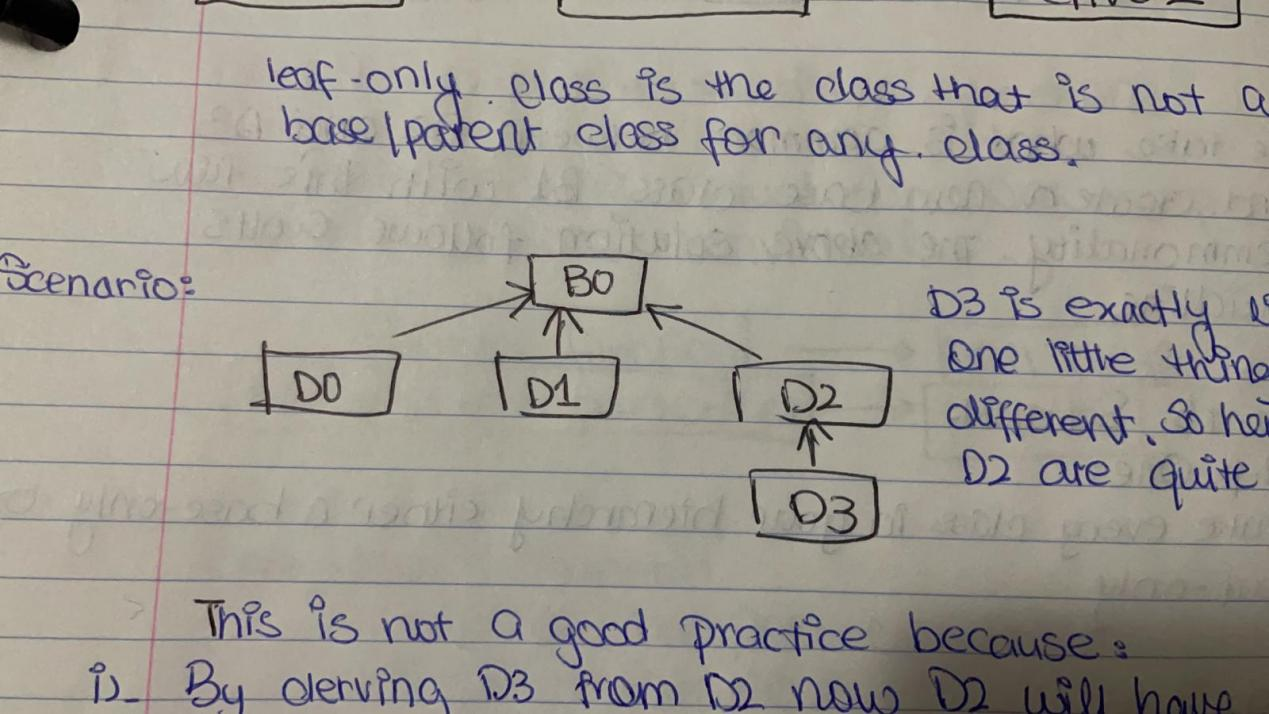 leaf-only. class is the class that is not a
base/parent class for any. class.
Scenario:
B0
D0
D1
D2
D3
D3 is exactly
one little thing
different. So
D2 are quite
This is not a good practice because:
i)- By derving D3 from D2 now D2 will have